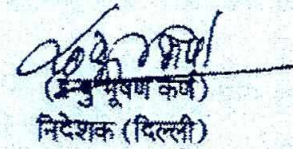 (इन्दु भूषण कर्ण)
निदेशक (दिल्ली)